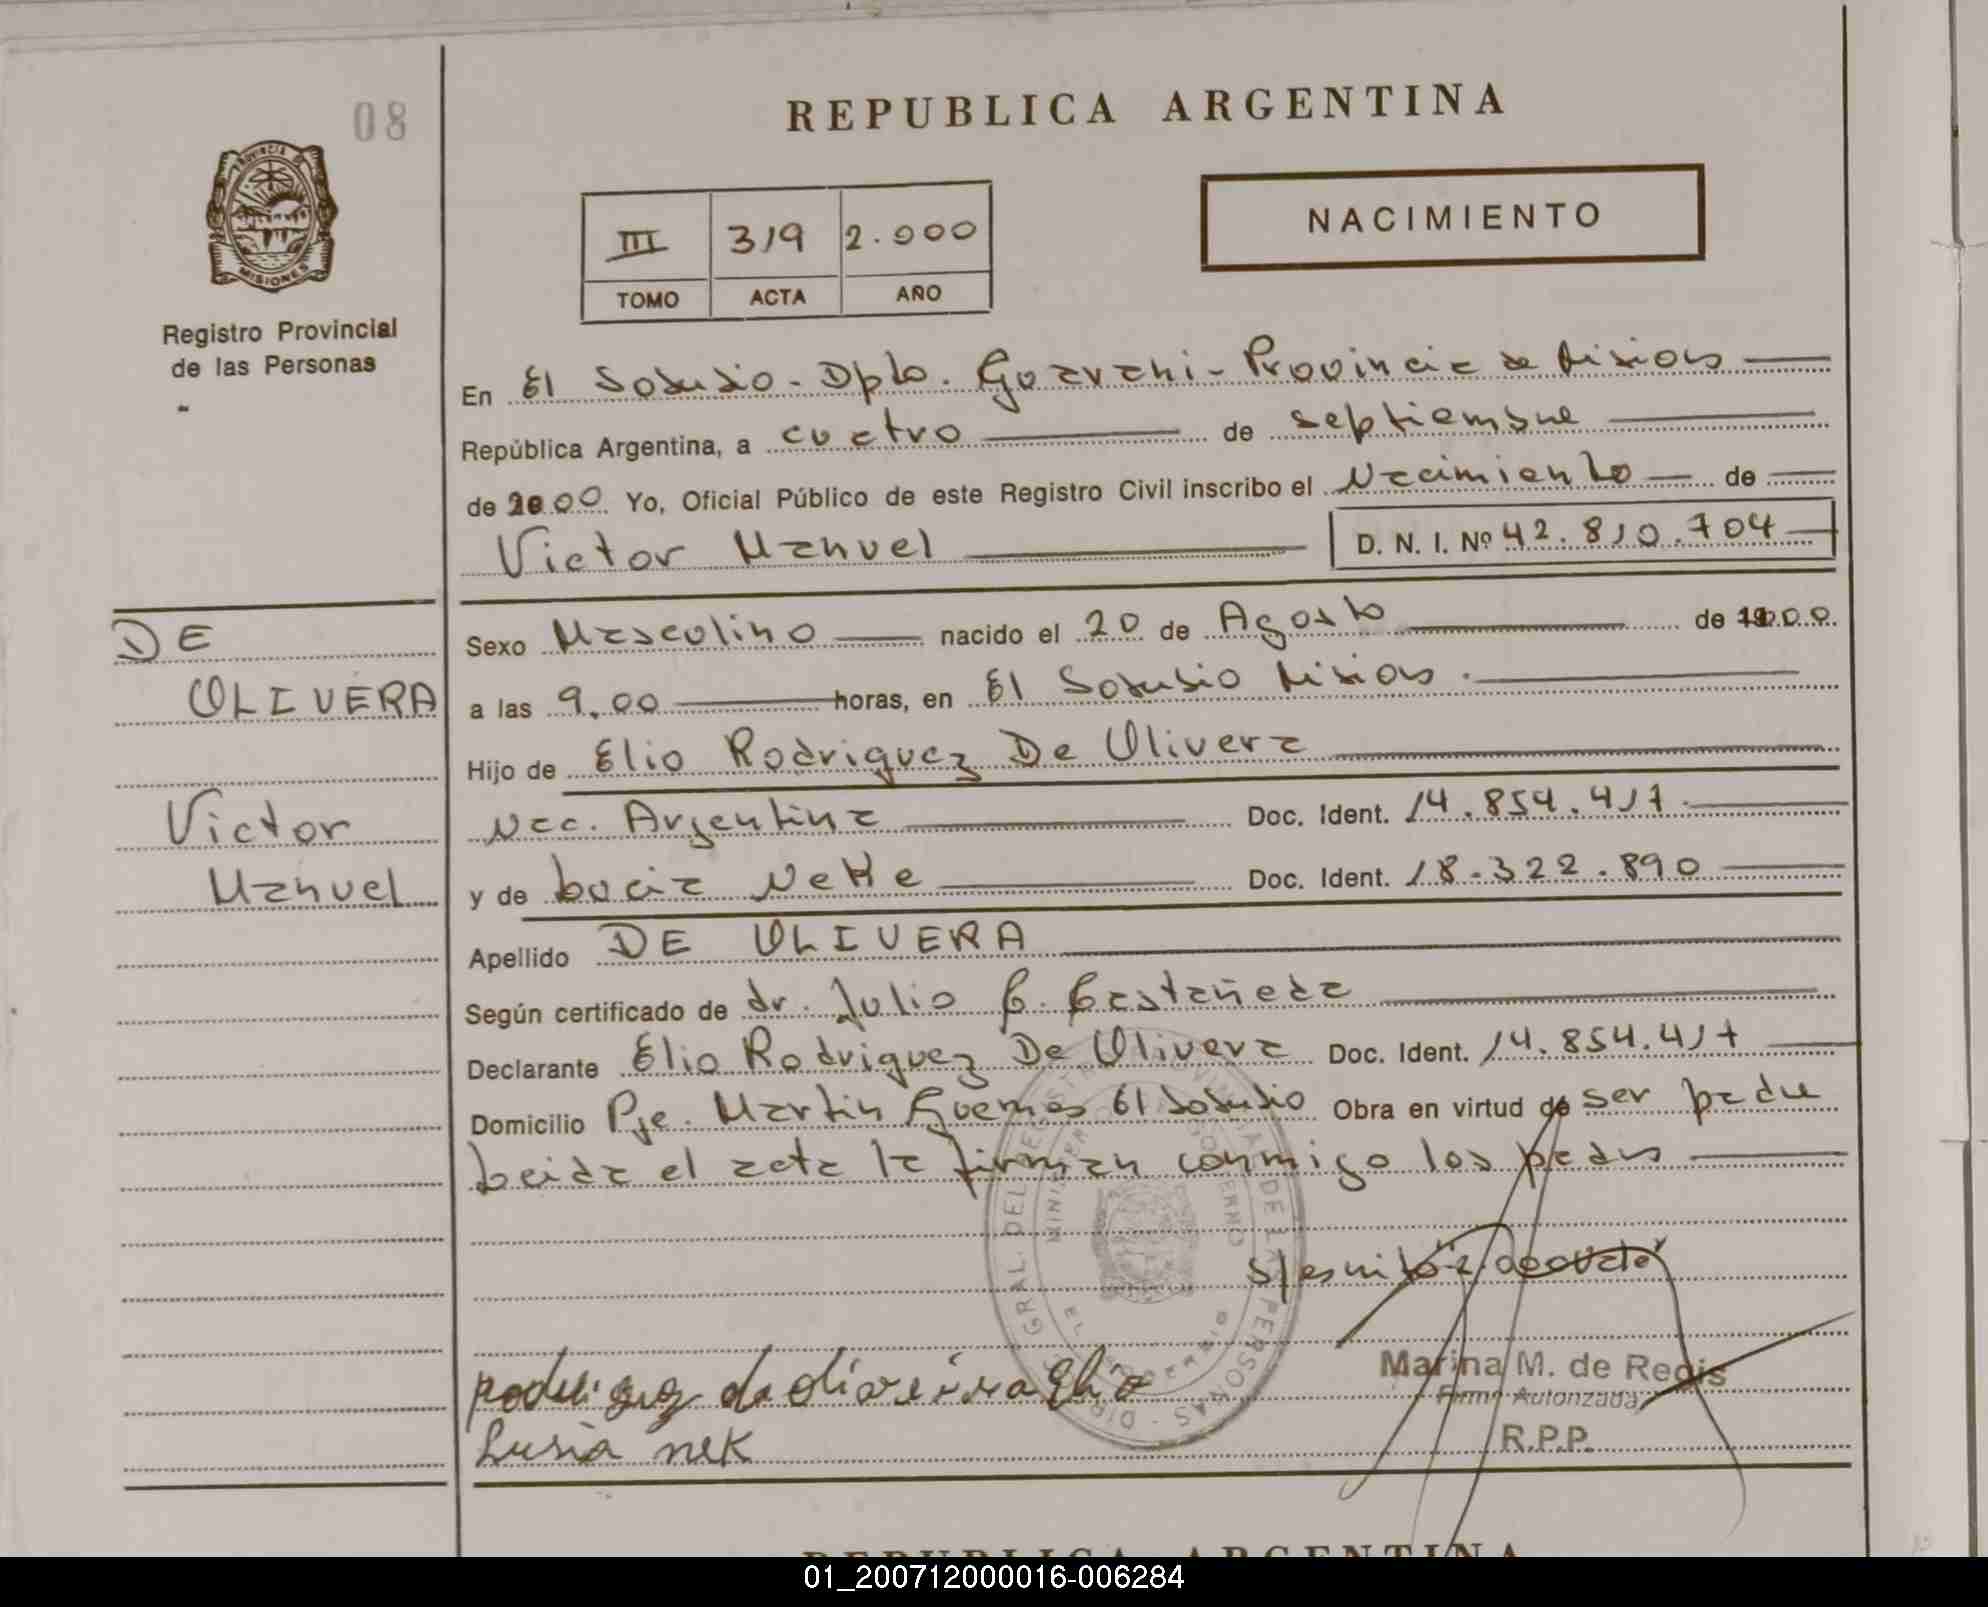 08
REPUBLICA ARGENTINA
PROVINCIA DE
MISIONES
Registro Provincial
de las Personas
III 319 2.000
TOMO ACTA AÑO
NACIMIENTO
En El Soberbio - Dpto. Guarani - Provincia de Misiones
República Argentina, a cuatro de septiembre
de 2000 Yo, Oficial Público de este Registro Civil inscribo el Nacimiento de
Victor Manuel D. N. I. Nº 42.810.704
DE
OLIVERA
Victor
Manuel
Sexo Masculino nacido el 20 de Agosto de
a las 9.00 horas, en El Soberbio Misiones.
Hijo de Elio Rodriguez De Olivera
Nac. Argentina Doc. Ident. 14.854.417
y de Lucia Neke Doc. Ident. 18.322.890
Apellido DE OLIVERA
Según certificado de dr. Julio C. Castañeda
Declarante Elio Rodriguez De Olivera Doc. Ident. 14.854.417
Domicilio Pje. Martin Guemes El Soberbio Obra en virtud de ser padre
Leida el acta la firman conmigo los padres
Marina M. de Regis
Firma Autorizada
R.P.P.
Lusia nek
REPUBLICA ARGENTINA
01_200712000016-006284